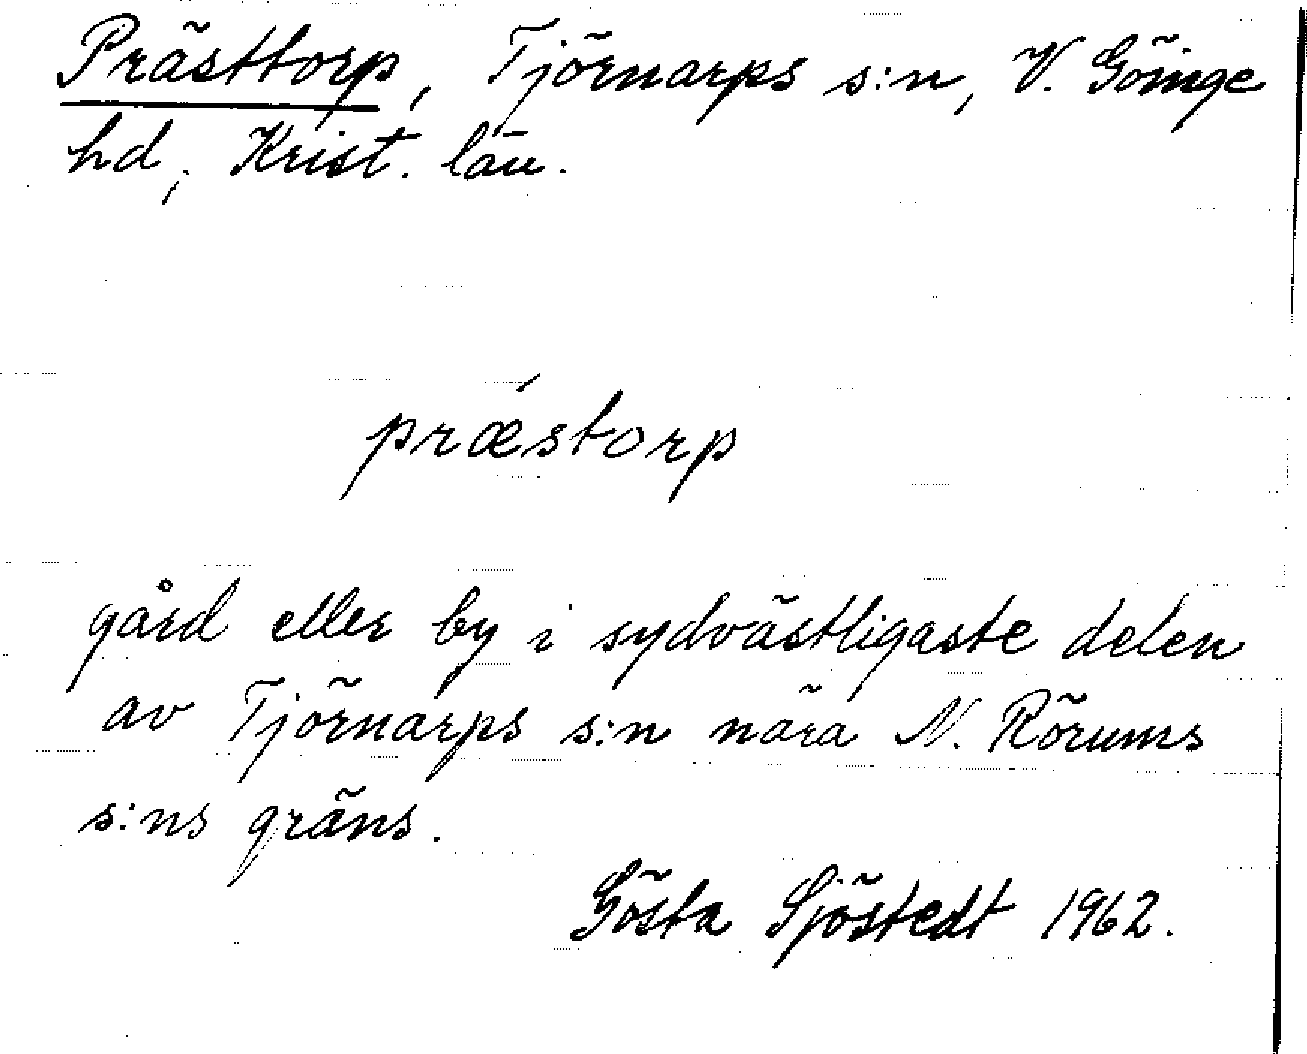 Prästtorp, Tjörnarps s:n, V. Göinge
hd, Krist. län.
prǽstorp
gård eller by i sydvästligaste delen
av Tjörnarps s:n nära N. Rörums
s:ns gräns.
Gösta Sjöstedt 1962.